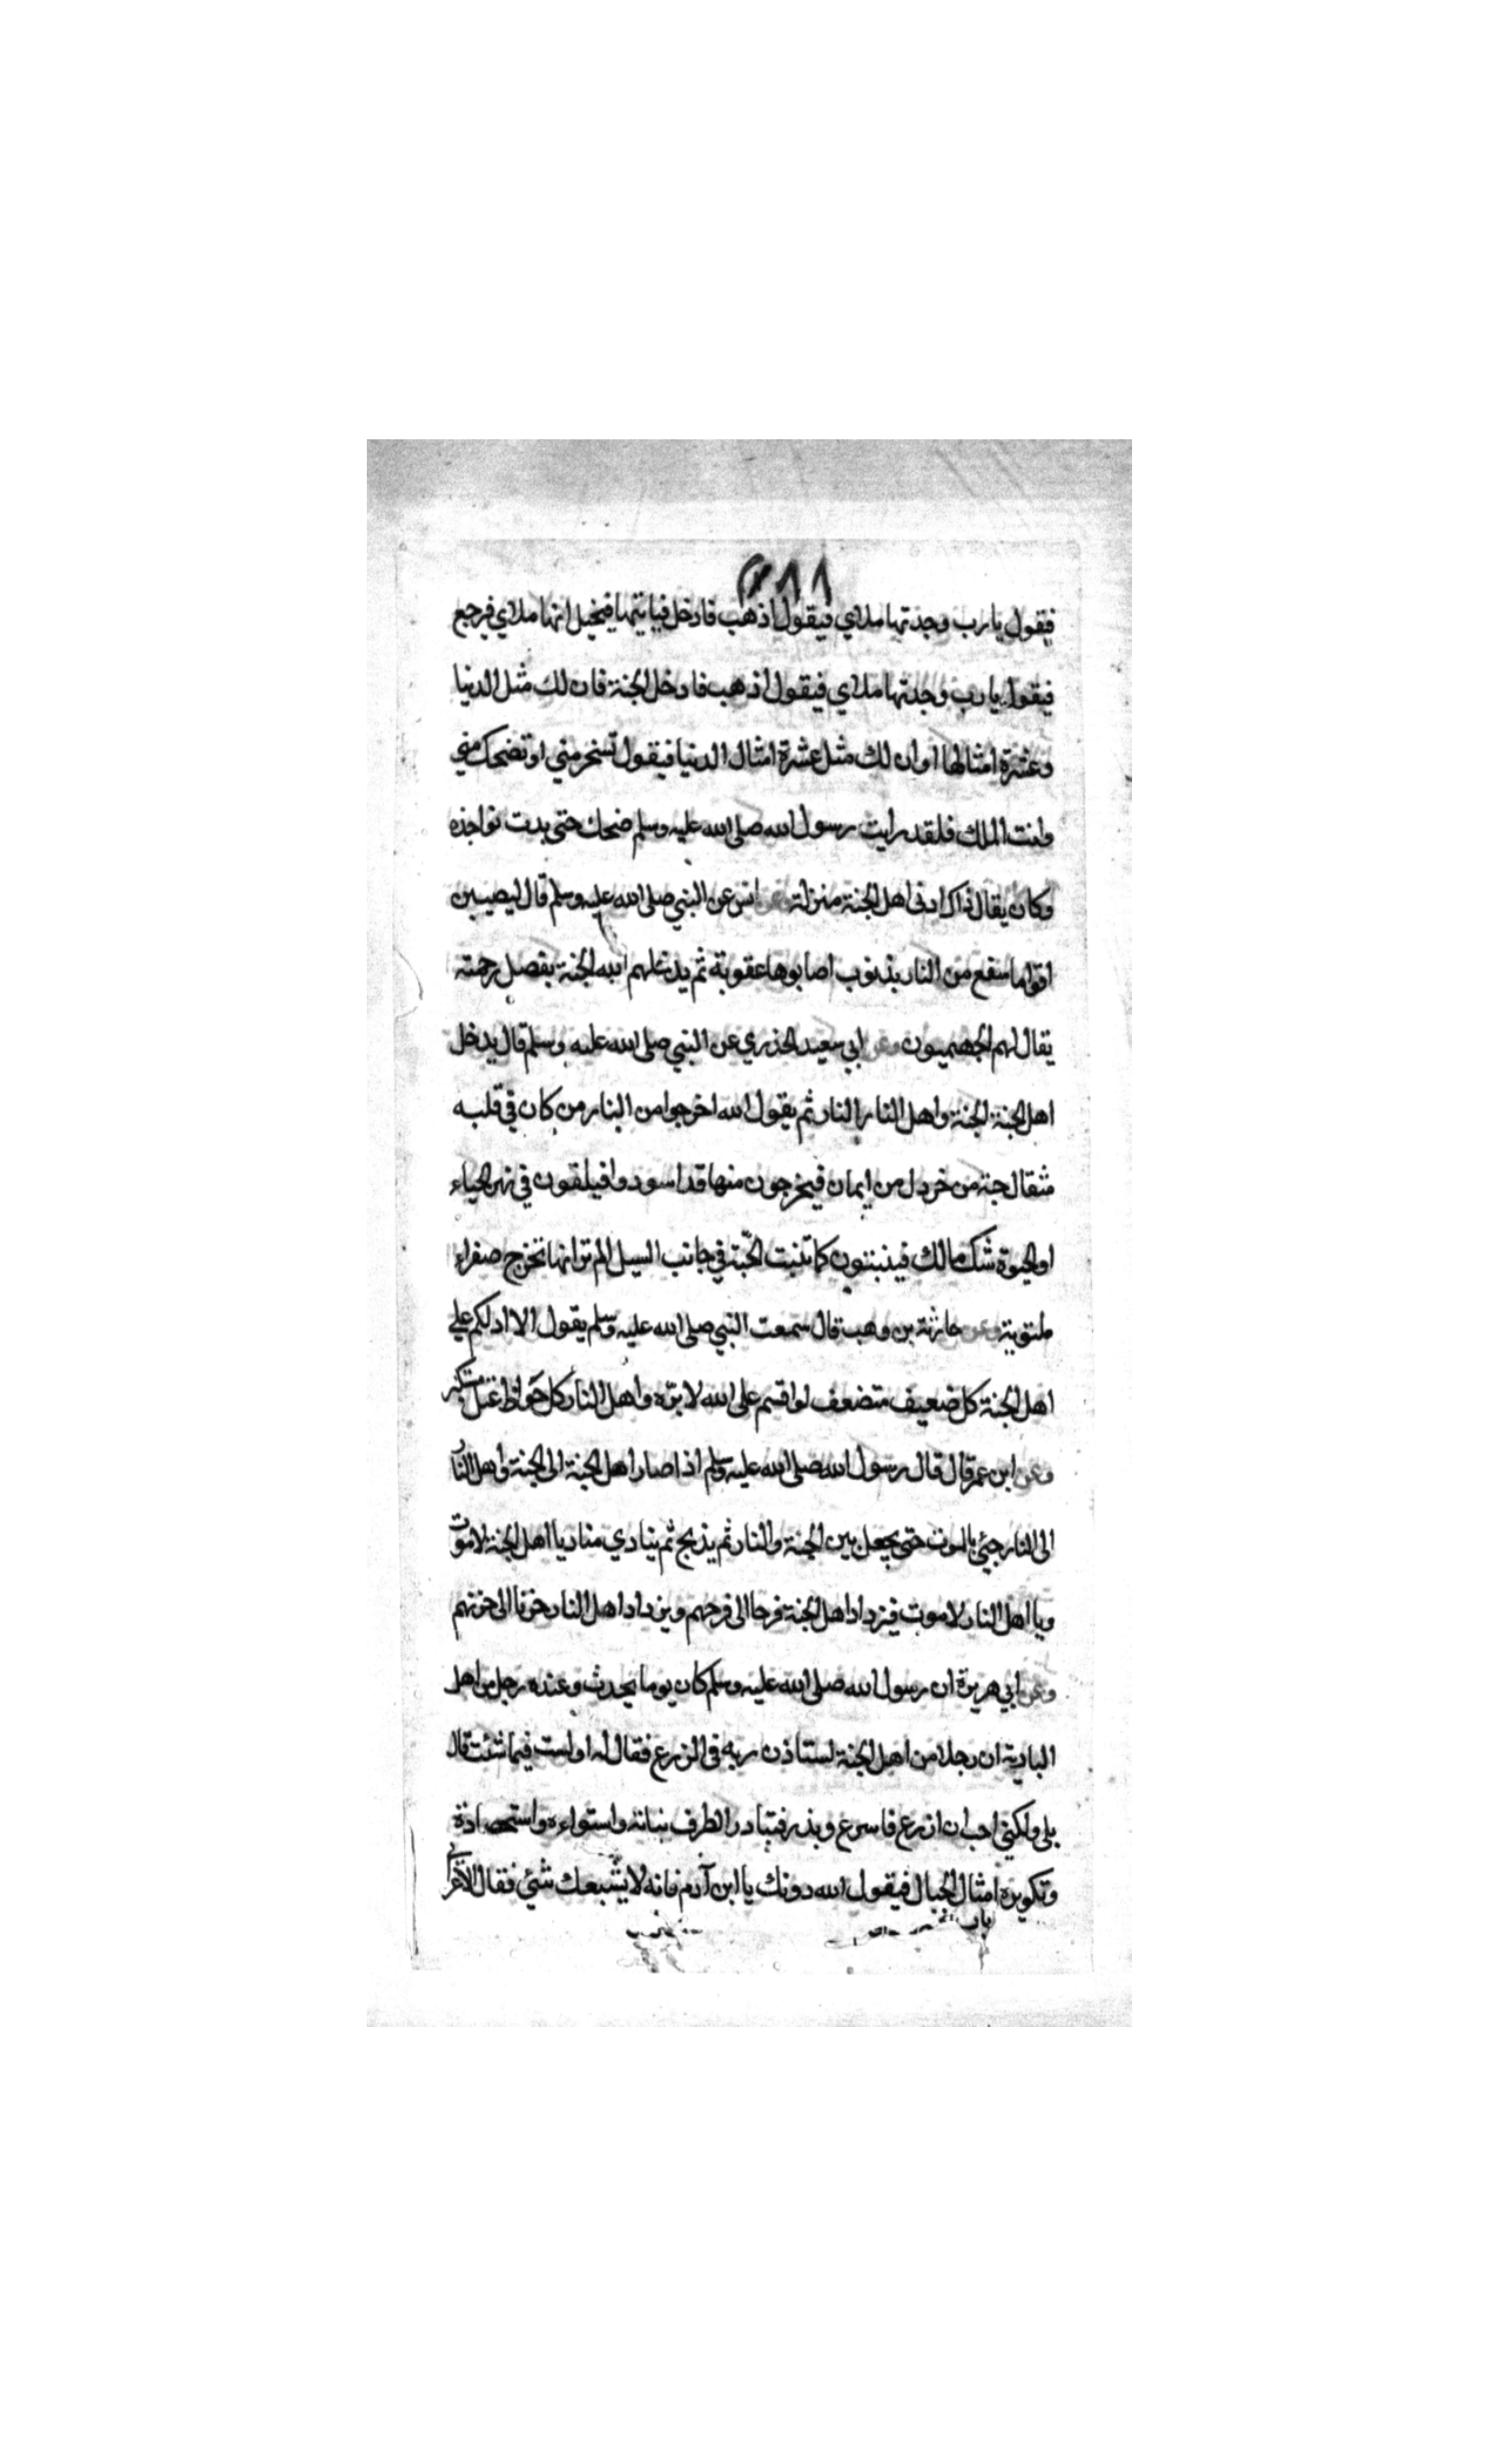 فيقول يا رب وجدتها ملاي فيقول اذهب فادخل فياتيها فيخيل انها ملاي فيرجع
فيقول يا رب وجدتها ملاي فيقول اذهب فادخل الجنة فان لك مثل الدنيا
وعشرة امثالها او ان لك مثل عشرة امثال الدنيا فيقول تسخر مني او تضحك مني
وانت الملك فلقد رايت رسول الله صلى الله عليه وسلم ضحك حتى بدت نواجذه
وكان يقال ذاك ادنى اهل الجنة منزلة وعن انس عن النبي صلى الله عليه وسلم قال ليصيبن
اقواما سفع من النار بذنوب اصابوها عقوبة ثم يدخلهم الله الجنة بفضل رحمته
يقال لهم الجهنميون وعن ابي سعيد الخذري عن النبي صلى الله عليه وسلم قال يدخل
اهل الجنة الجنة واهل النار النار ثم يقول الله اخرجوا من النار من كان في قلبه
مثقال حبة من خردل من ايمان فيخرجون منها قد اسودوا فيلقون في نهر الحياء
او الحيوة شك مالك فينبتون كما تنبت الحبة في جانب السيل الم تر انها تخرج صفراء
ملتوية وعن حارثة بن وهب قال سمعت النبي صلى الله عليه وسلم يقول الا ادلكم علي
اهل الجنة كل ضعيف متضعف لو اقسم على الله لابره واهل النار كل جواظ عتل مستكبر
وعن ابن عمر قال قال رسول الله صلى الله عليه وسلم اذا صار اهل الجنة الى الجنة واهل النار
الى النار جئ بالموت حتى يجعل بين الجنة والنار ثم يذبح ثم ينادي مناد يا اهل الجنة لا موت
ويا اهل النار لا موت فيزداد اهل الجنة فرحا الى فرحهم ويزداد اهل النار حزنا الى حزنهم
وعن ابي هريرة ان رسول الله صلى الله عليه وسلم كان يوما يحدث وعنده رجل من اهل
البادية ان رجلا من اهل الجنة استاذن ربه في الزرع فقال له اولست فيما شئت قال
بلى ولكني احب ان ازرع فاسرع وبذر فتبادر الطرف نباته واستواءه واستحصاده
وتكويره امثال الجبال فيقول الله دونك يا ابن آدم فانه لا يشبعك شئ فقال الاعرابي
باب